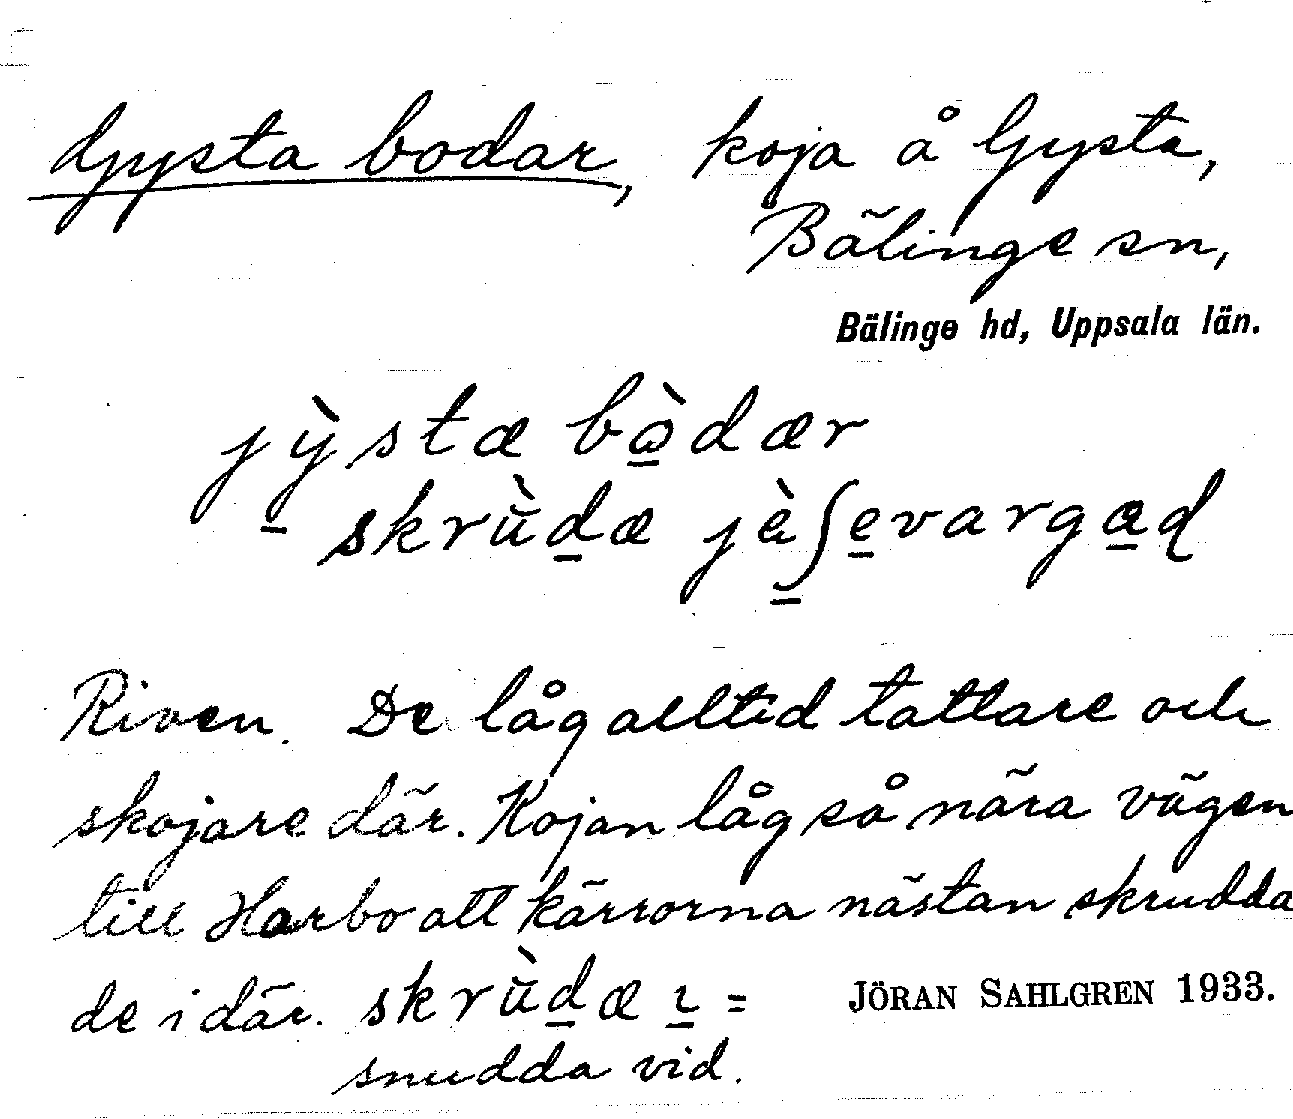 Gysta bodar, koja å Gysta,
Bälinge sn,
Bälinge hd, Uppsala län.
jỳstæ bὼdær
skrùdæ jὲʃevargæd
Riven. De låg alltid tattare och
skojare där. Kojan låg så nära vägen
till Harbo att kärrorna nästan skrudda
de i där. skrùdæ ɩ =
snudda vid.
JÖRAN SAHLGREN 1933.